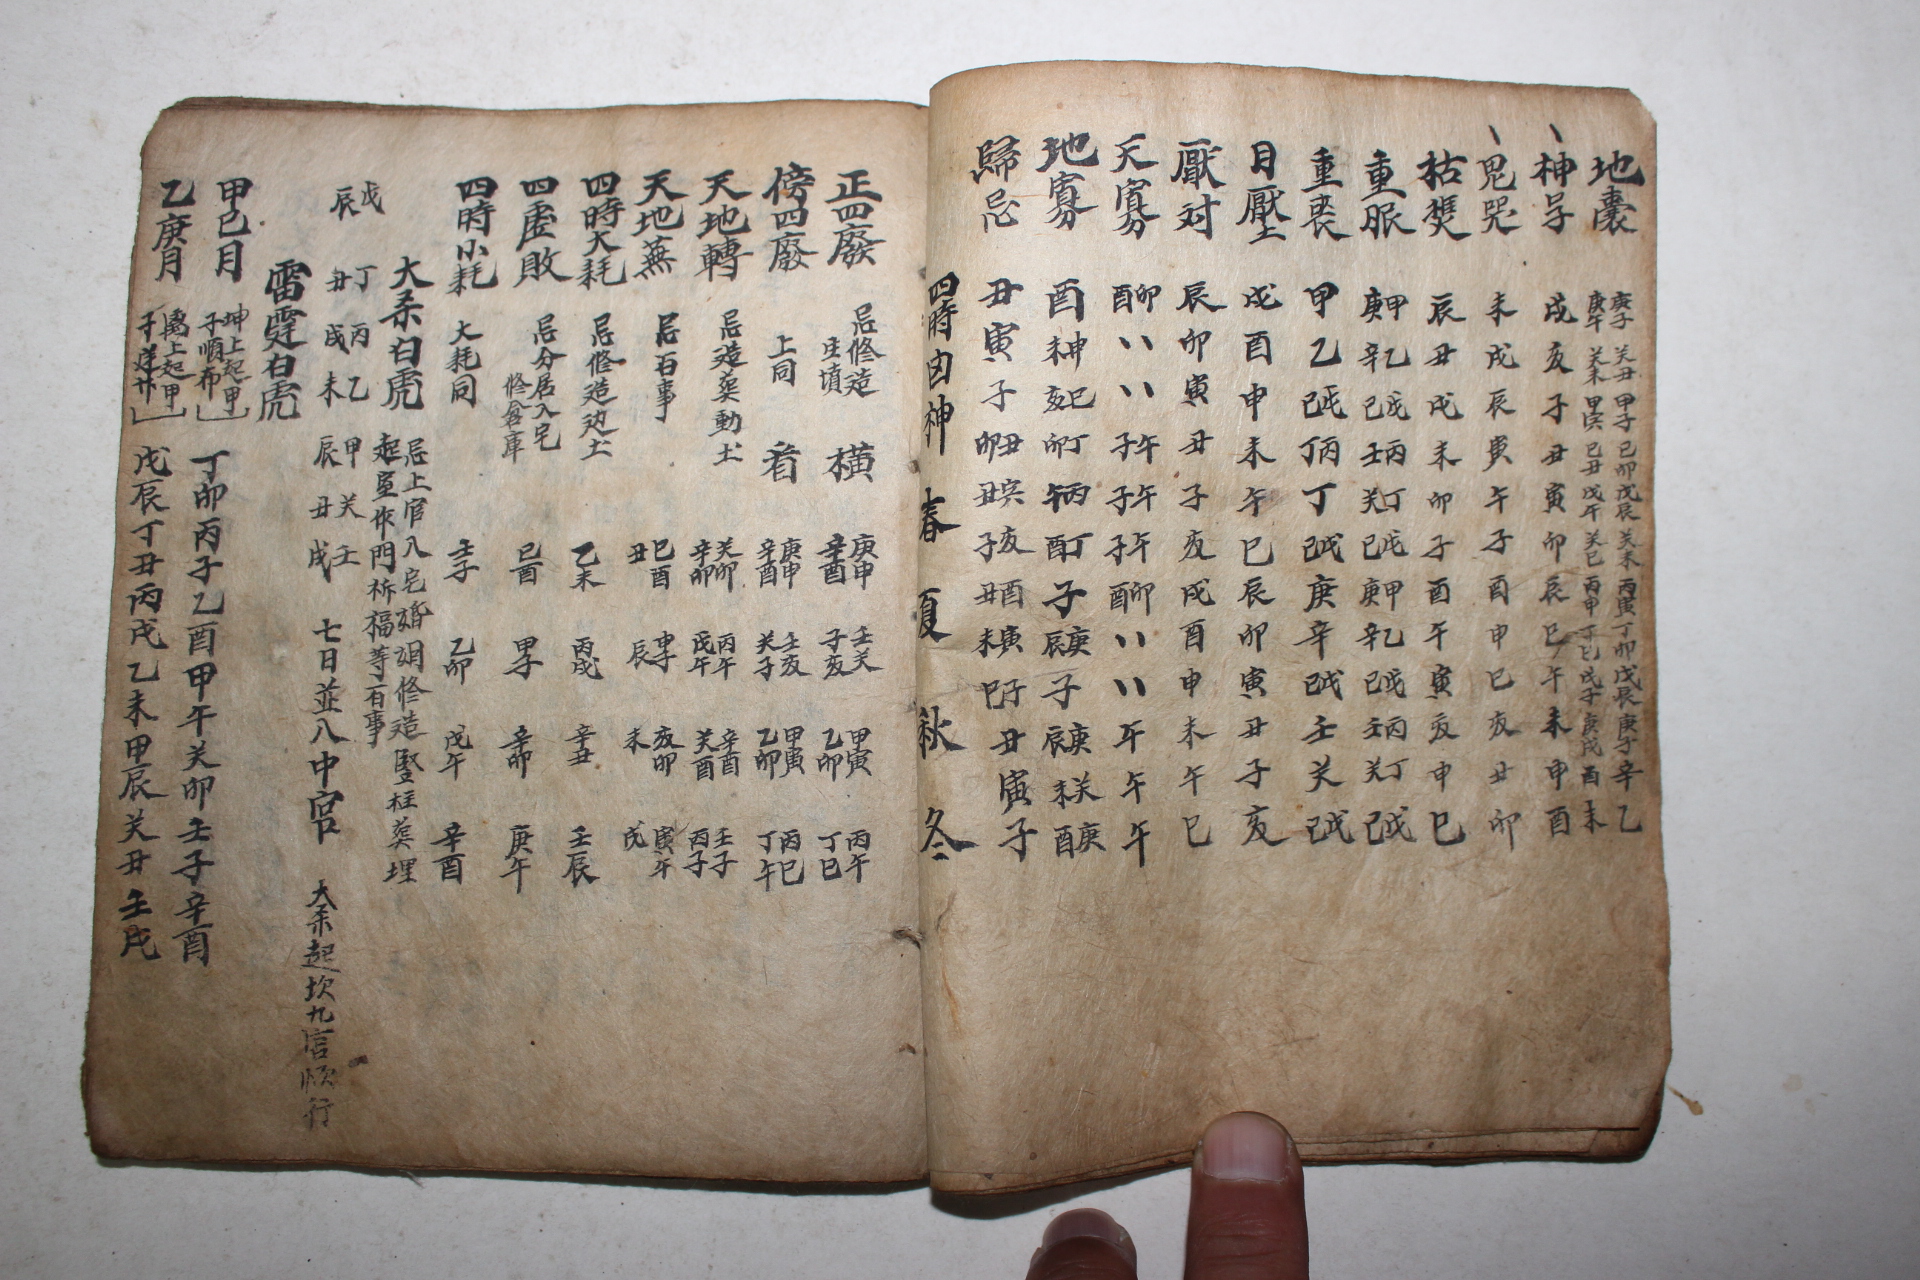 地囊 庚子 庚午 癸丑 癸未 甲子 甲寅 己卯 己丑 戊辰 戊午 癸未 癸巳 丙寅 丙申 丁卯 丁巳 戊辰 戊子 庚子 庚戌 辛 酉 乙 未
神号 戌亥子丑寅卯辰巳午未申酉
鬼哭 未戌辰寅午子酉申巳亥丑卯
枯焦 辰丑戌未卯子酉午寅亥申巳
重服 甲庚 乙辛 戊己 丙壬 丁癸 戊己 甲庚 乙辛 戊己 丙壬 丁癸 戊己
重喪 甲乙 戊己 丙丁 丁 戊己 庚辛 戊己 壬癸 戊己
月壓 戌酉申未午巳辰卯寅丑子亥
厭対 辰卯寅丑子亥戌酉申未午巳
天寡 卯酉 午子 午子 午子 卯酉 午午午
地寡 酉
歸忌 丑寅子
四時凶神 春 夏 秋 冬
正四廢 忌修造 生墳 橫 庚申 辛酉 壬子 癸亥 甲寅 乙卯 丙午 丁巳
傍四廢 上同 看 庚申 辛酉 壬亥 癸子 甲寅 乙卯 丙巳 丁午
天地轉 忌造葬動土 癸卯 辛卯 丙午 戊午 辛酉 癸酉 壬子 丙子
天地蕪 忌百事 巳酉丑 申子辰 亥卯未 寅午戌
四時大耗 忌修造动土 乙未 丙戌 辛丑 壬辰
四虛敗 忌分居入宅 修倉庫 己酉 甲子 辛卯 庚午
四時小耗 大耗同 壬子 乙卯 戊午 辛酉
大杀白虎 忌上官入宅婚姻修造竪柱葬埋 起屋作門祈福等百事
戊辰 丁丑 丙戌 乙未 甲辰 癸丑 壬戌 七日並入中宮 大杀起坎九宮順行
雷霆白虎
甲己月 坤上起甲子順布 丁卯丙子乙酉甲午癸卯壬子辛酉
乙庚月 离上起甲子 戊辰丁丑丙戌乙未甲辰癸丑壬戌